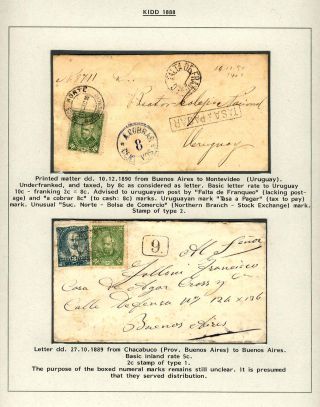 KIDD 1888
FALTA DE FRANQUEO
NORTE
TASA A PAGAR
A COBRAR
8
Uruguay
Printed matter dd. 10.12.1890 from Buenos Aires to Montevideo (Uruguay).
Underfranked, and taxed, by 8c as considered as letter. Basic letter rate to Uruguay
10c - franking 2c = 8c. Advised to uruguayan post by "Falta de Franqueo" (lacking post-
age) and "a cobrar 8c" (to cash: 8c) marks. Uruguayan mark "Tasa a Pagar" (tax to pay)
mark. Unusual "Suc. Norte - Bolsa de Comercio" (Northern Branch - Stock Exchange) mark.
Stamp of type 2.
9.
Al Señor
Francisco
Casa de Edgar Cross y C
Calle Defensa Nº 126 a 136
Buenos Aires
Letter dd. 27.10.1889 from Chacabuco (Prov. Buenos Aires) to Buenos Aires.
Basic inland rate 5c.
2c stamp of type 1.
The purpose of the boxed numeral marks remains still unclear. It is presumed
that they served distribution.